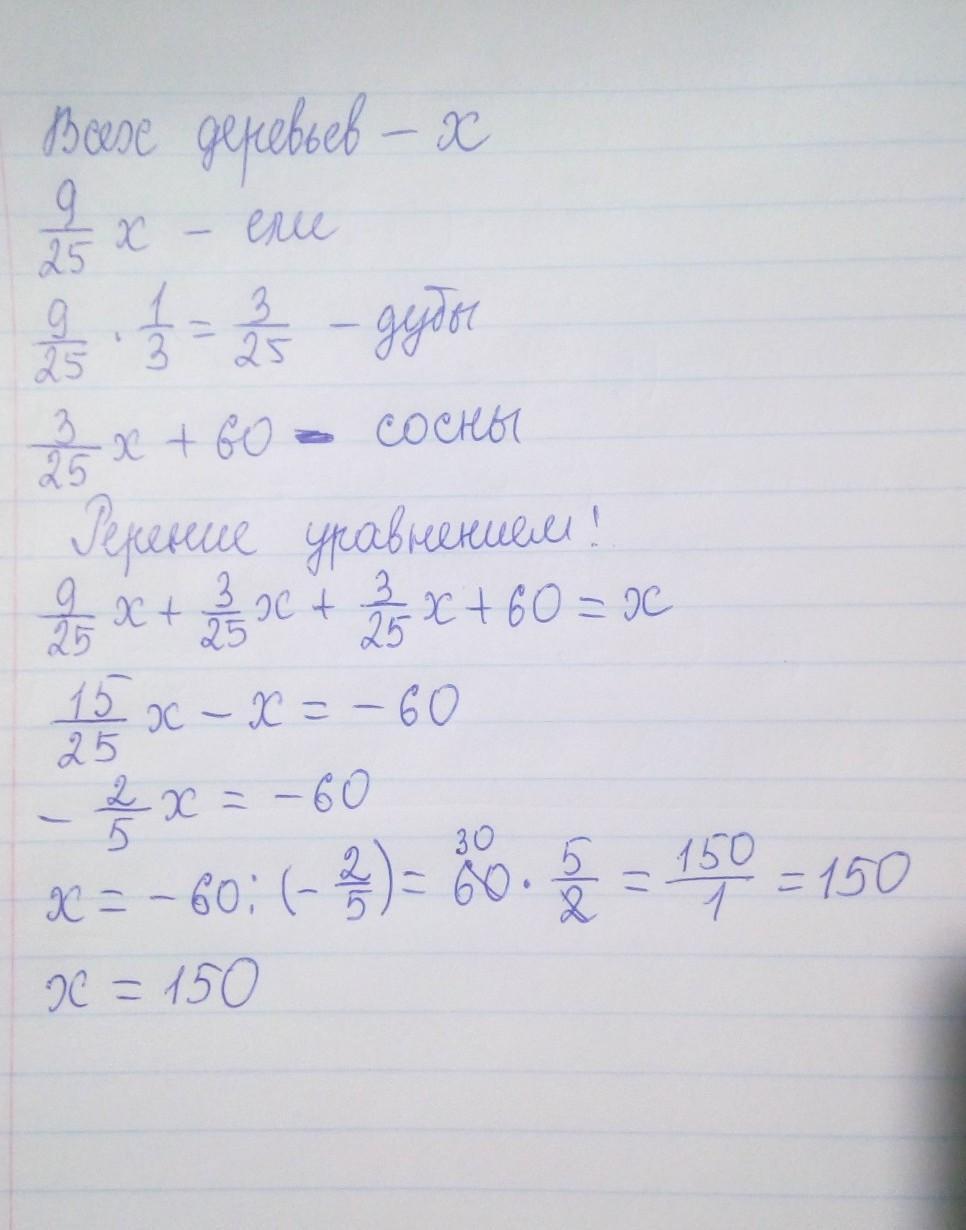 Всех деревьев – х
9/25 х – ели
9/25 · 1/3 = 3/25 – дубы
3/25 х + 60 – сосны
Решение уравнением!
9/25 х + 3/25 х + 3/25 х + 60 = х
15/25 х – х = – 60
– 2/5 х = – 60
х = – 60 : (– 2/5) = 60 30 · 5/2 = 150/1 = 150
х = 150